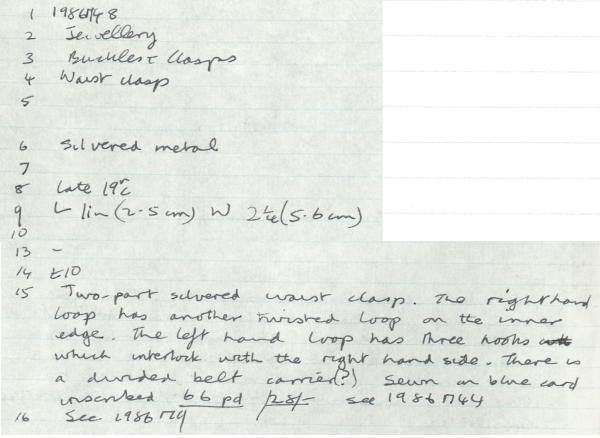 1 1986M48
2 Jewellery
3 Buckles & Clasps
4 Waist clasp
5
6 Silvered metal
7
8 Late 19th c
9 L 1in (2.5cm) W 2¼ (5.6cm)
10
13 -
14 £10
15 Two-part silvered waist clasp. The right hand
loop has another twisted loop on the inner
edge. The left hand loop has three hooks
which interlock with the right hand side. There is
a divided belt carrier(?) Sewn on blue card
inscribed 66 pd see 1986M44
16 See 1986M19